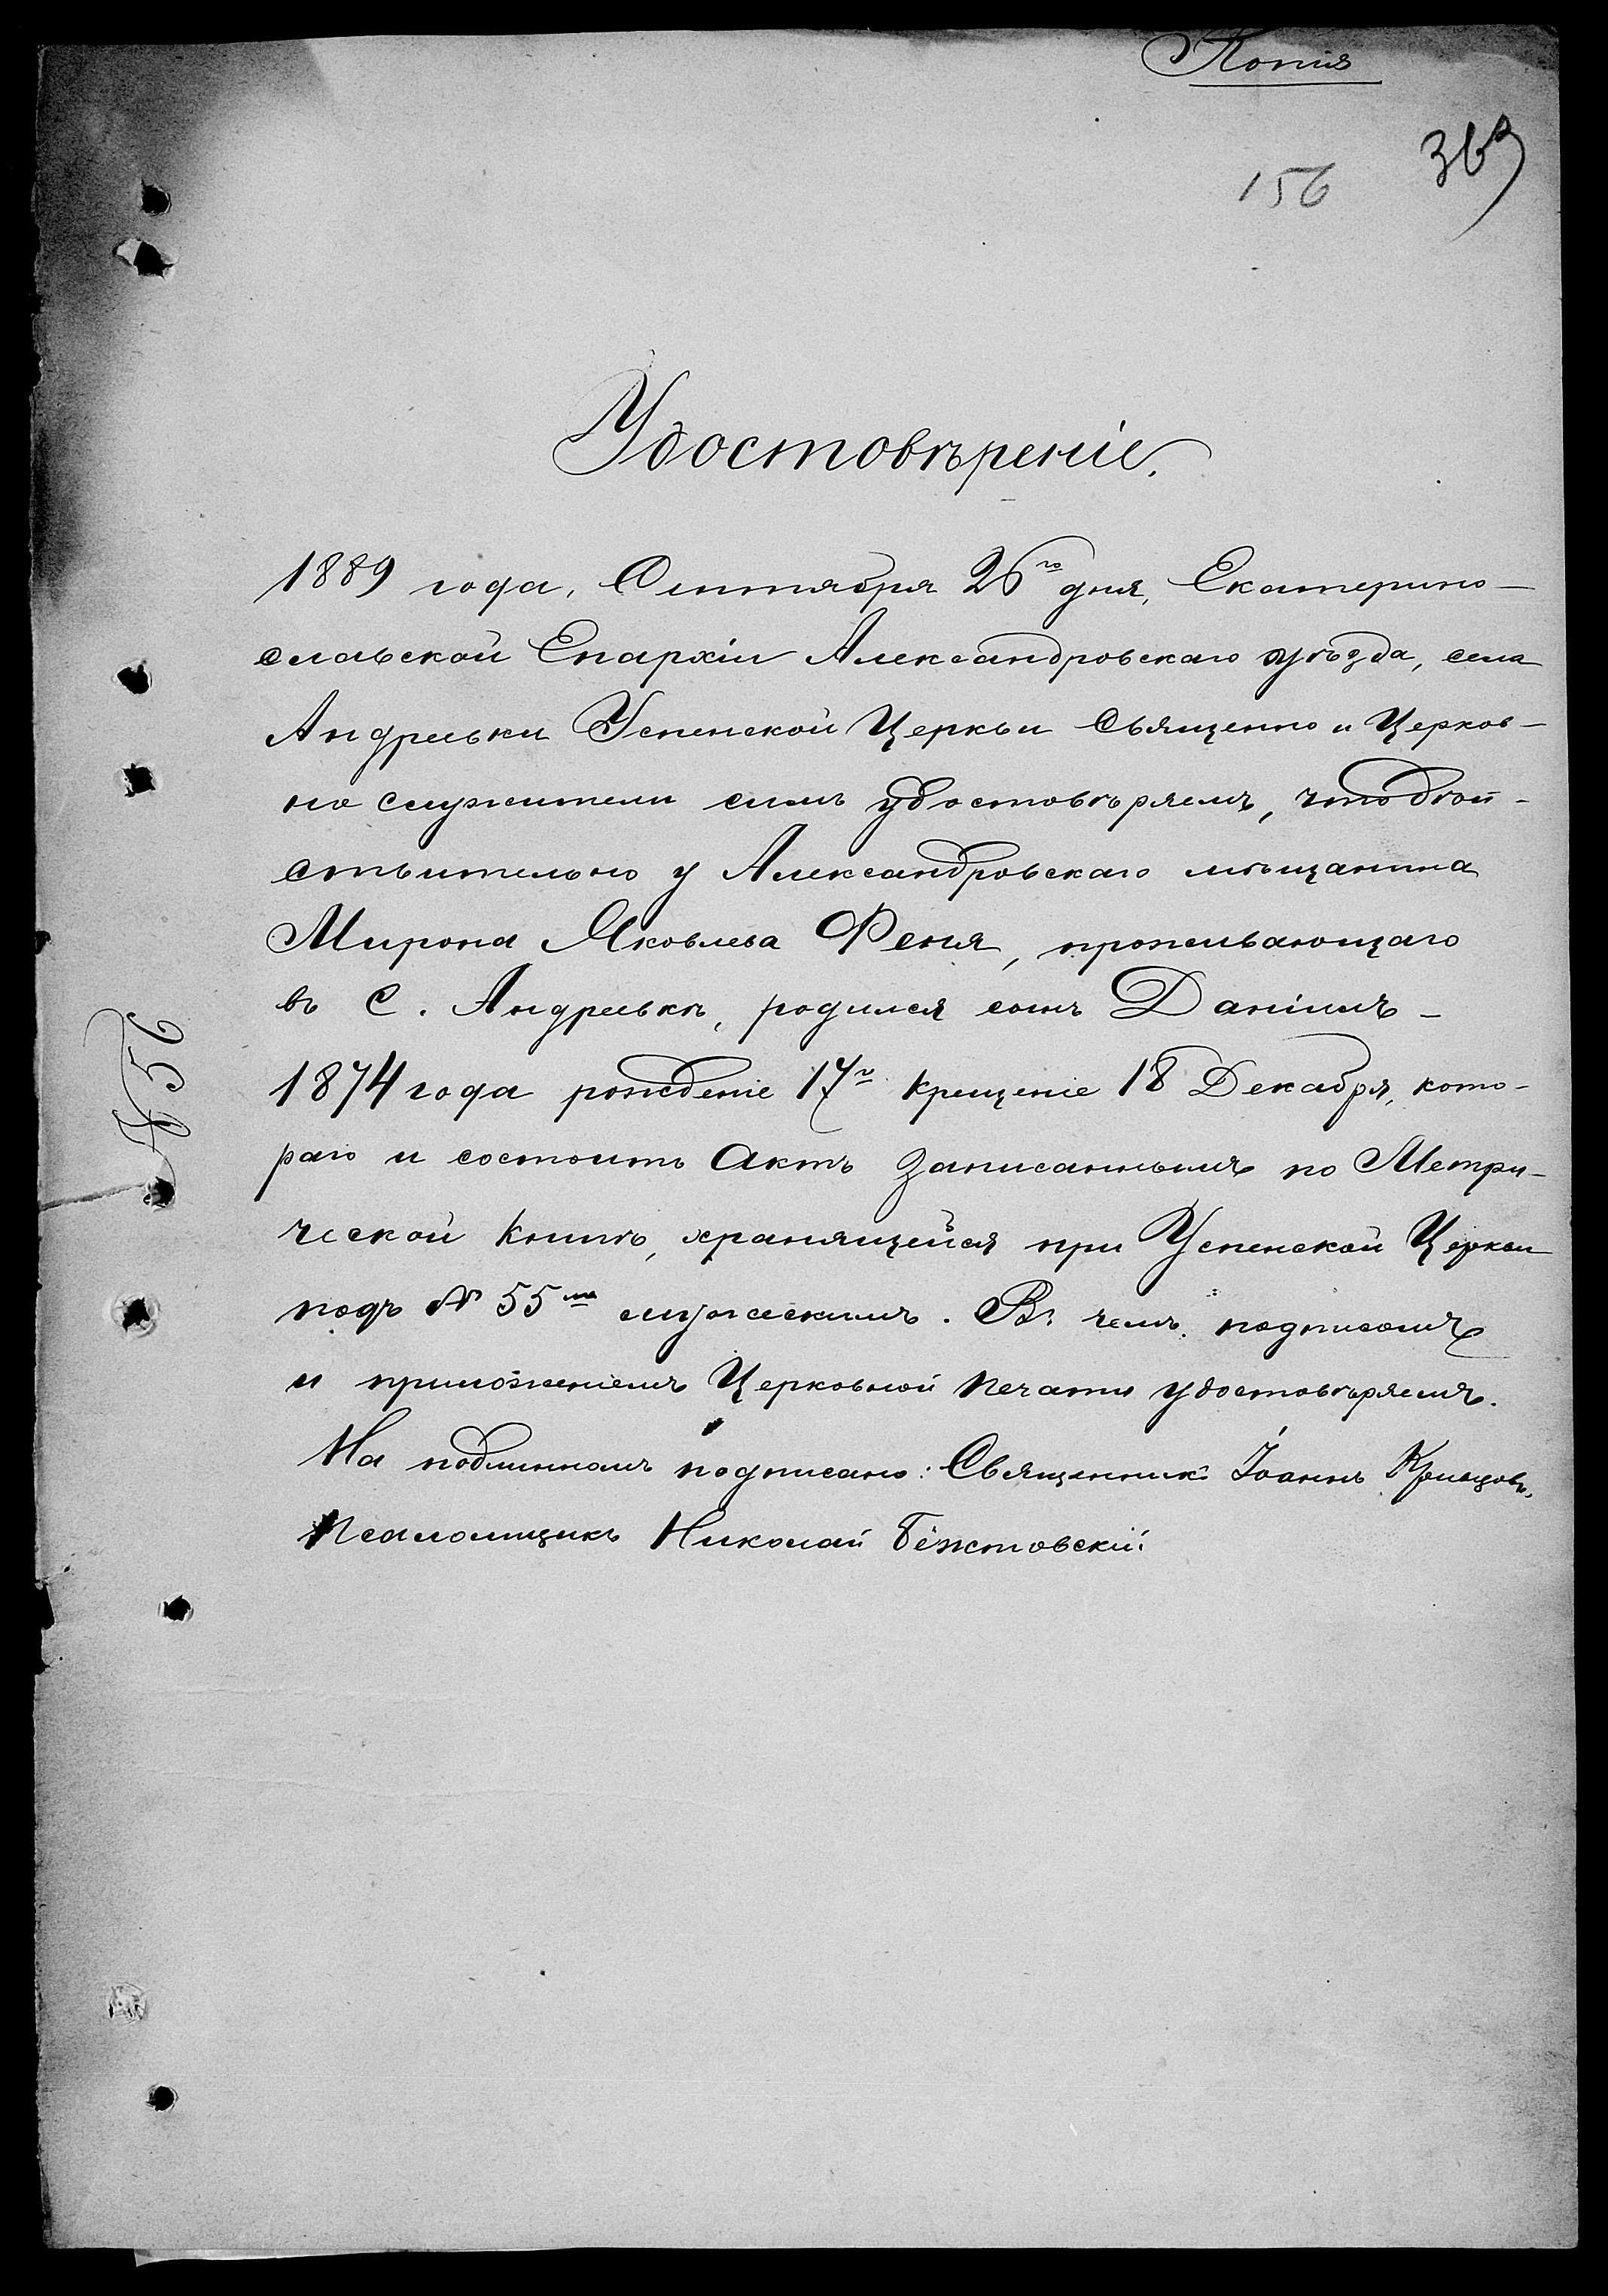 Копія
369
156
Удостовѣреніе.
1889 года, Сентября 26го дня, Екатерино-
славской Епархіи Александровскаго уѣзда, села
Андреевки Успенской Церкви Священно и Церков-
но служители симъ удостовѣряемъ, что дѣй-
ствительно у Александровскаго мѣщанина
Мирона Яковлева Феня, проживающаго
въ С. Андреевкѣ, родился сынъ Даніилъ -
1874 года рожденіе 17го крещеніе 18 Декабря, кото-
раго и состоитъ актъ записаннымъ по Метри-
ческой книгѣ, хранящейся при Успенской Церкви
подъ № 55мъ мужескимъ. Въ чемъ подписомъ
и приложеніемъ Церковной печати удостовѣряемъ.
На подлинномъ подписано: Священникъ Іоаннъ
Псаломщикъ Николай